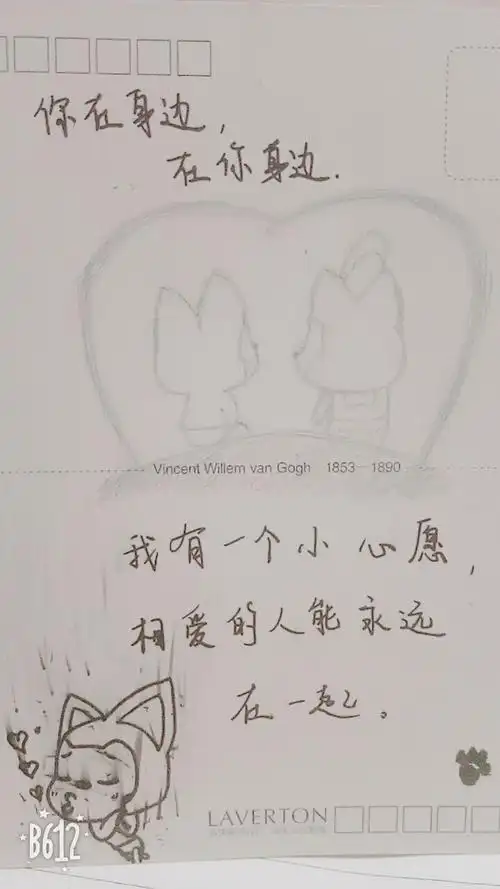 你在身边,
在你身边.
Vincent Willem van Gogh 1853—1890
我有一个小心愿,
相爱的人能永远
在一起。
LAVERTON
B612